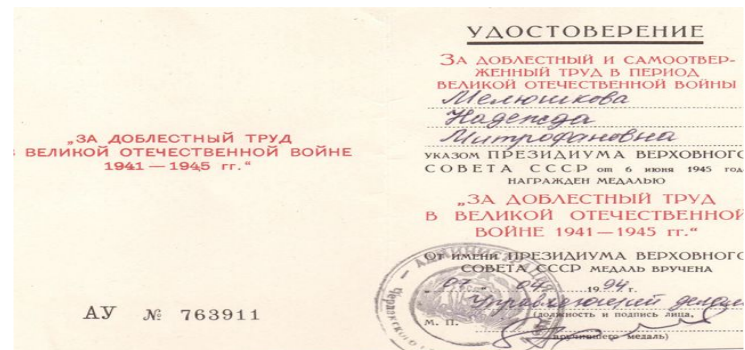 „ЗА ДОБЛЕСТНЫЙ ТРУД
В ВЕЛИКОЙ ОТЕЧЕСТВЕННОЙ ВОЙНЕ
1941 — 1945 гг.“
АУ № 763911
УДОСТОВЕРЕНИЕ
ЗА ДОБЛЕСТНЫЙ И САМООТВЕР-
ЖЕННЫЙ ТРУД В ПЕРИОД
ВЕЛИКОЙ ОТЕЧЕСТВЕННОЙ ВОЙНЫ
Мелюшкова
Надежда
Митрофановна
УКАЗОМ ПРЕЗИДИУМА ВЕРХОВНОГО
СОВЕТА СССР от 6 июня 1945 год
НАГРАЖДЕН МЕДАЛЬЮ
„ЗА ДОБЛЕСТНЫЙ ТРУД
В ВЕЛИКОЙ ОТЕЧЕСТВЕННОЙ
ВОЙНЕ 1941 — 1945 гг.“
ОТ ИМЕНИ ПРЕЗИДИУМА ВЕРХОВНОГО
СОВЕТА СССР МЕДАЛЬ ВРУЧЕНА
07 04 1994 г.
Управляющий делами
(должность и подпись лица,
М. П. вручившего медаль)
АДМИНИСТРАЦИЯ